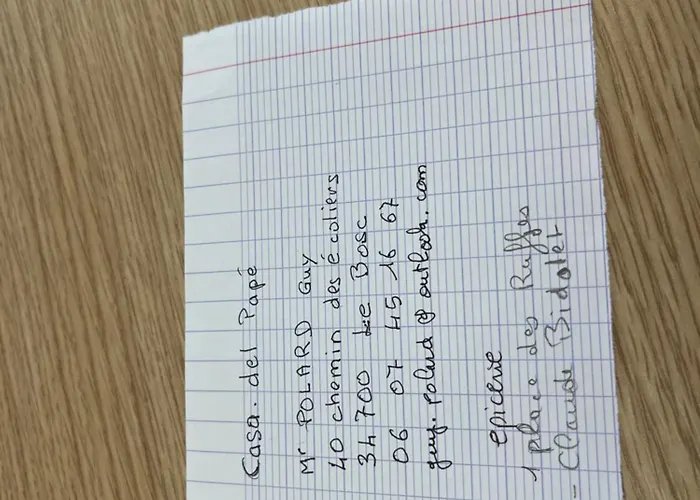 Casa. del Papé
Mr POLARD Guy
40 chemin des écoliers
34700 Le Bosc
06 07 45 16 67
guy.polard@outlook.com
epicerie
1 place des Ruffes
- Claude Bidalet